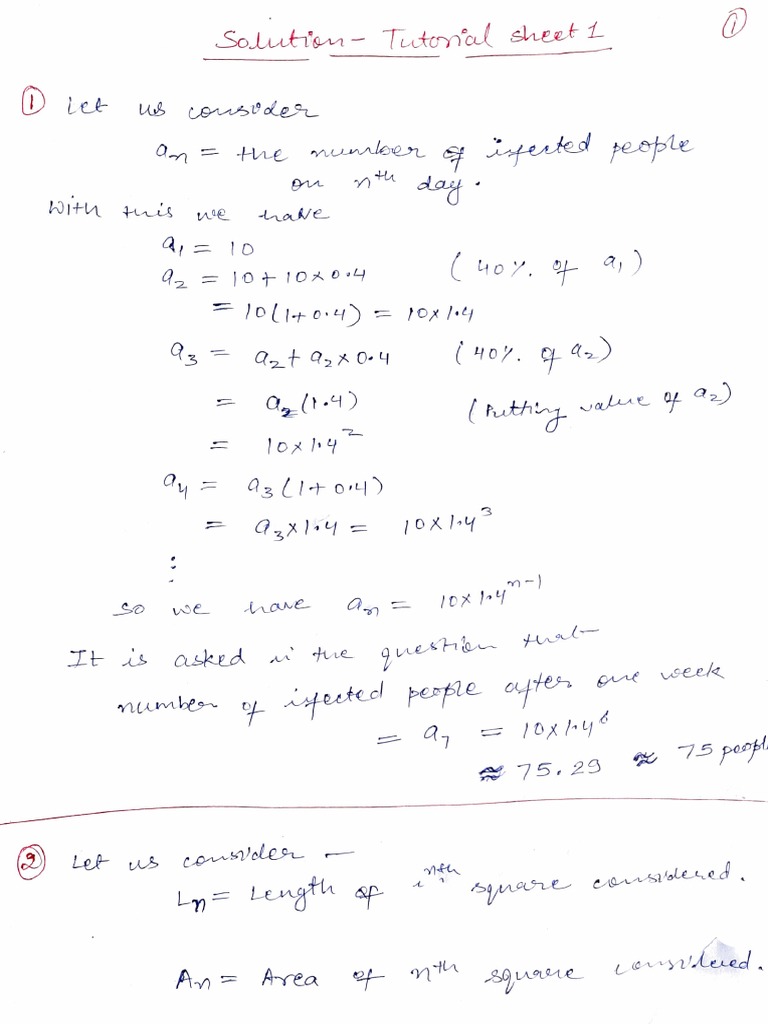 Solution - Tutorial sheet 1
①
① Let us consider
aₙ = the number of infected people
on nᵗʰ day.
With this we have
a₁ = 10
a₂ = 10 + 10×0.4 (40% of a₁)
= 10(1+0.4) = 10×1.4
a₃ = a₂ + a₂×0.4 (40% of a₂)
= a₂(1.4) (Putting value of a₂)
= 10×1.4²
a₄ = a₃(1+0.4)
= a₃×1.4 = 10×1.4³
⋮
so we have aₙ = 10×1.4ⁿ⁻¹
It is asked in the question that
number of infected people after one week
= a₇ = 10×1.4⁶
≈ 75.29 ≈ 75 peopl
② Let us consider —
Lₙ = Length of nᵗʰ square considered.
Aₙ = Area of nᵗʰ square considered.